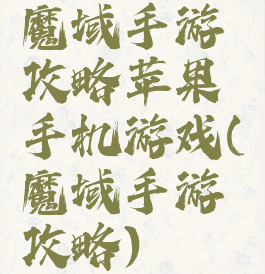 魔域手游
攻略苹果
手机游戏(
魔域手游
攻略)